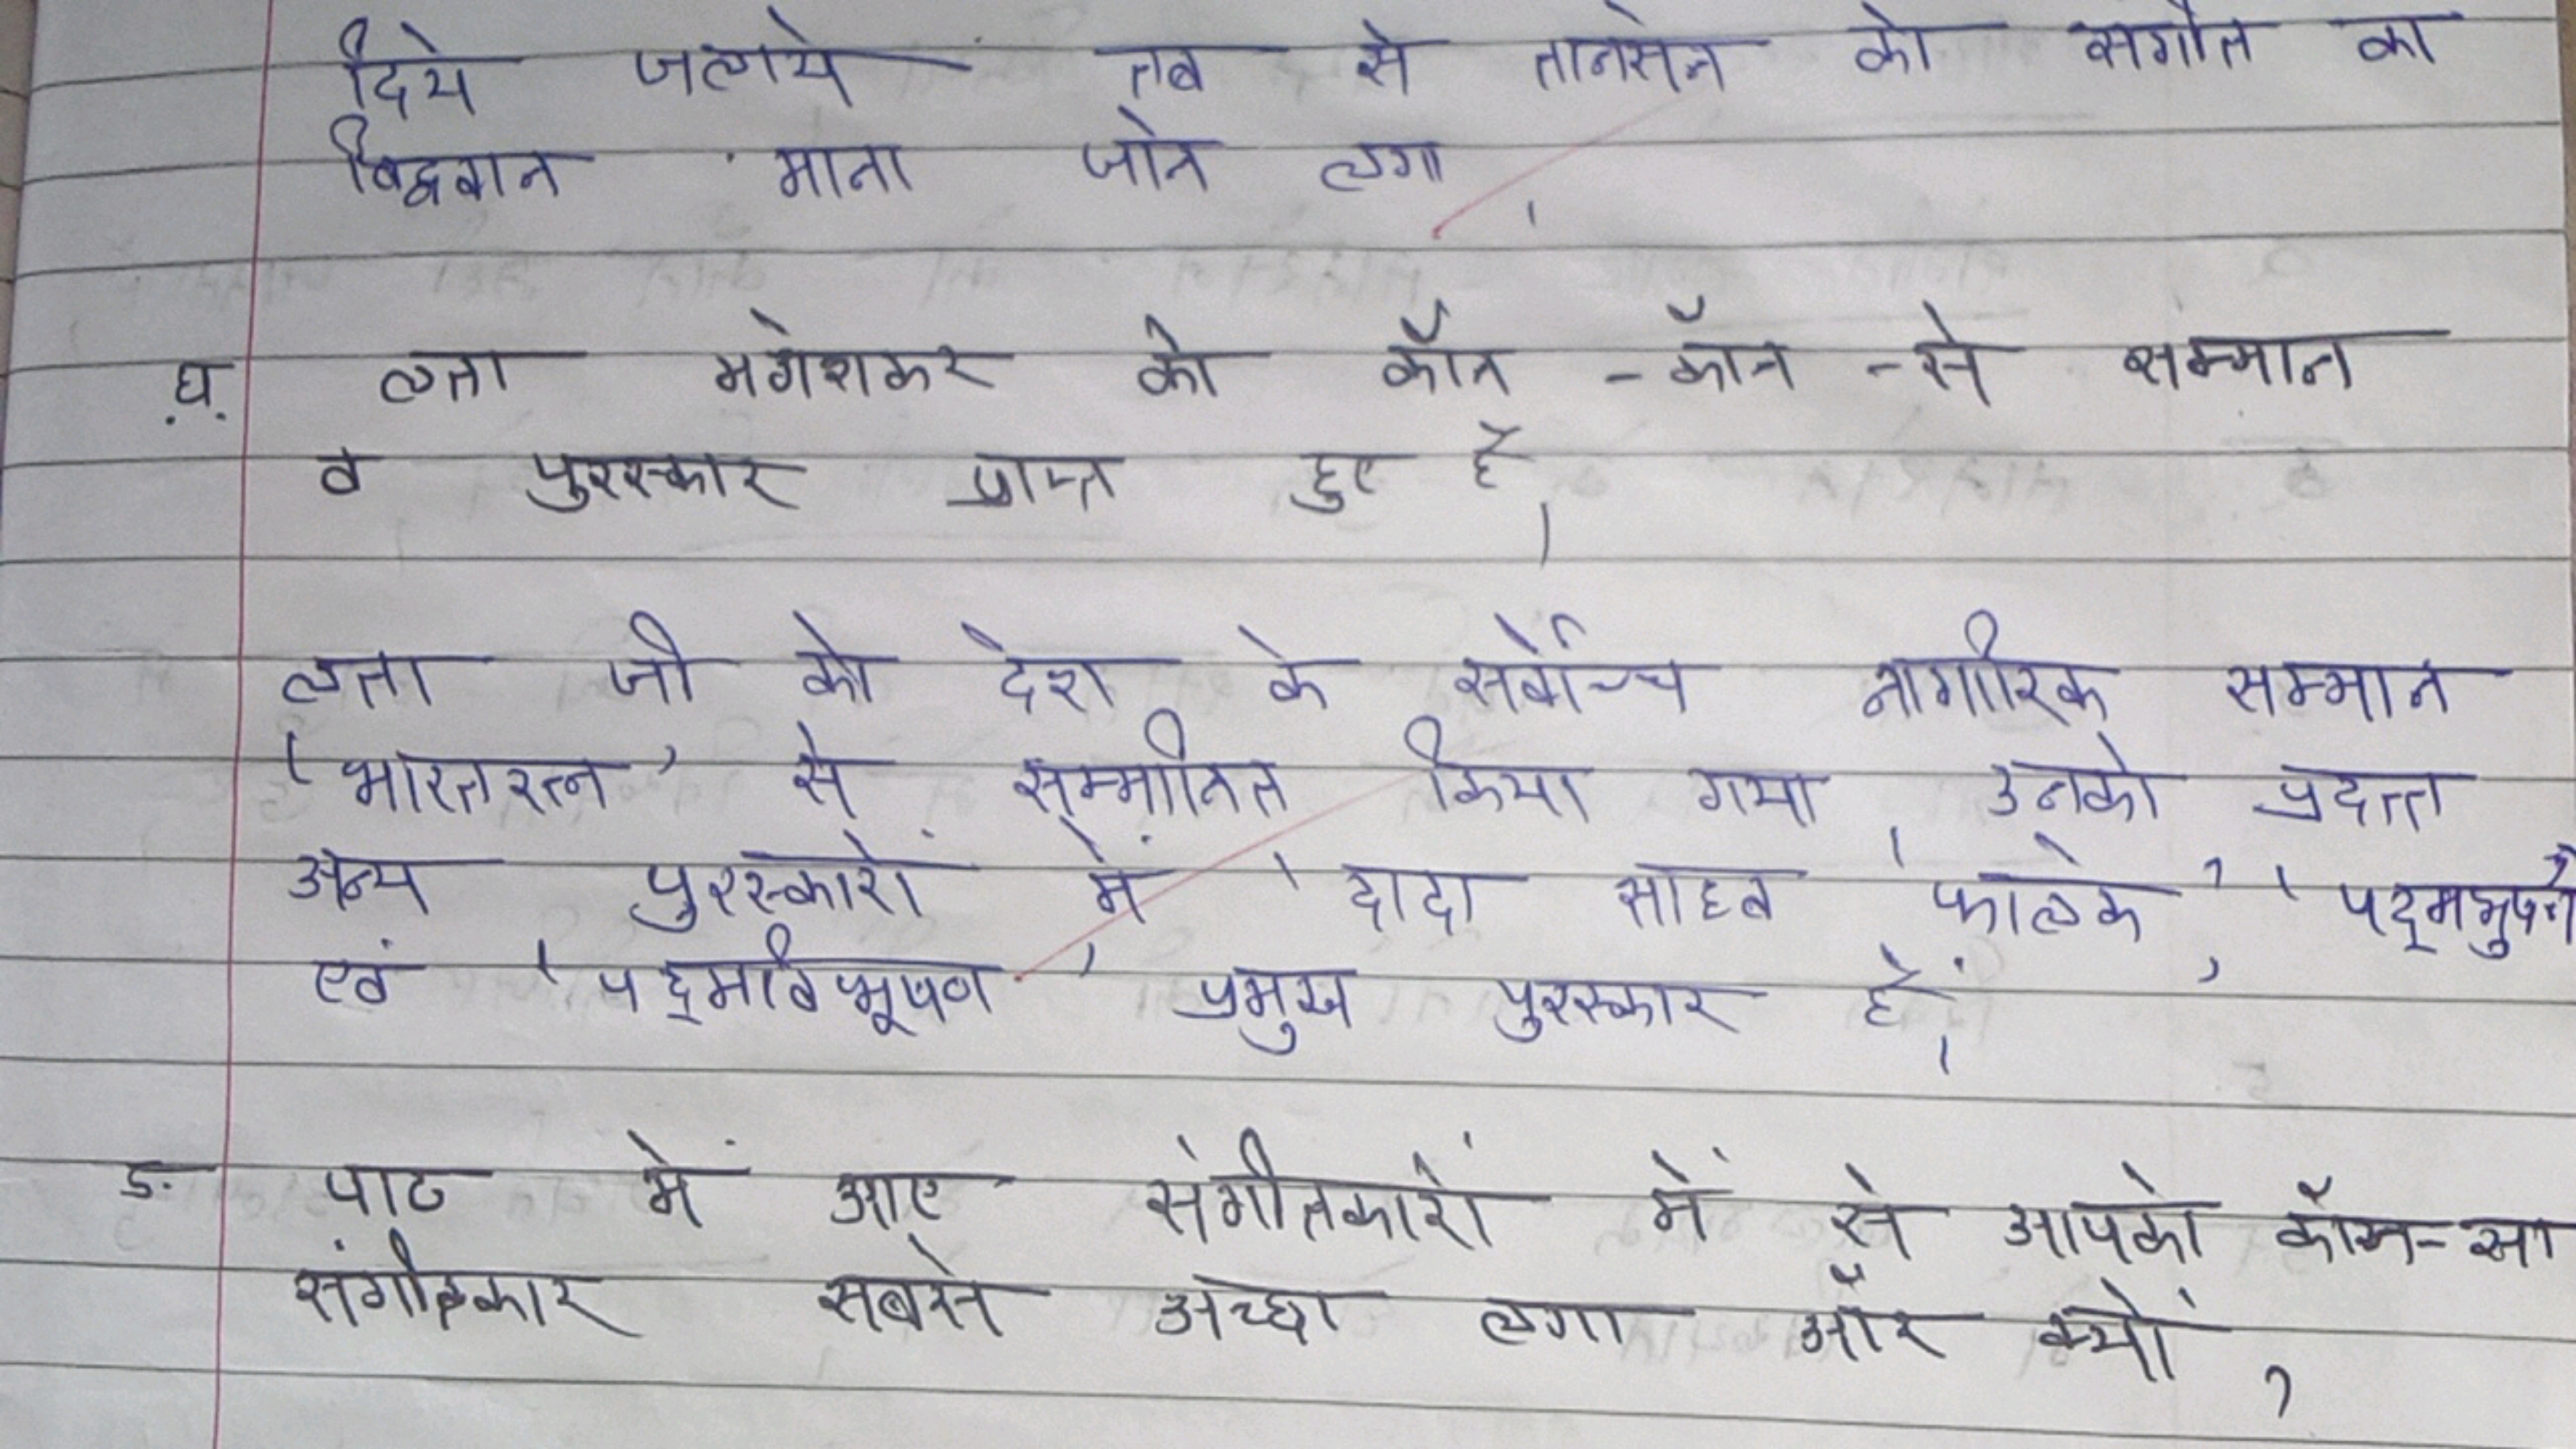 दिये जलाये तब से तानसेन को संगीत का
विद्ववान माना जाने लगा ।
घ. लता मंगेशकर को कौन - कौन - से सम्मान
व पुरस्कार प्राप्त हुए है ।
लता जी को देश के सर्वोच्च नागरिक सम्मान
'भारतरत्न' से सम्मानित किया गया । उनको प्रदत्त
अन्य पुरस्कारों में 'दादा साहब फालके', 'पद्मभुषण'
एवं 'पद्मविभूषण' प्रमुख पुरस्कार हैं ।
ड. पाठ में आए संगीतकारों में से आपको कौन-सा
संगीतकार सबसे अच्छा लगा और क्यों ?